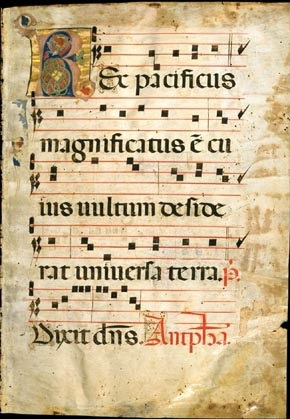 Rex pacificus
magnificatus ē cu
ius uultum deside
rat universa terra. p̄.
Dixit dn̄s. Antpha.